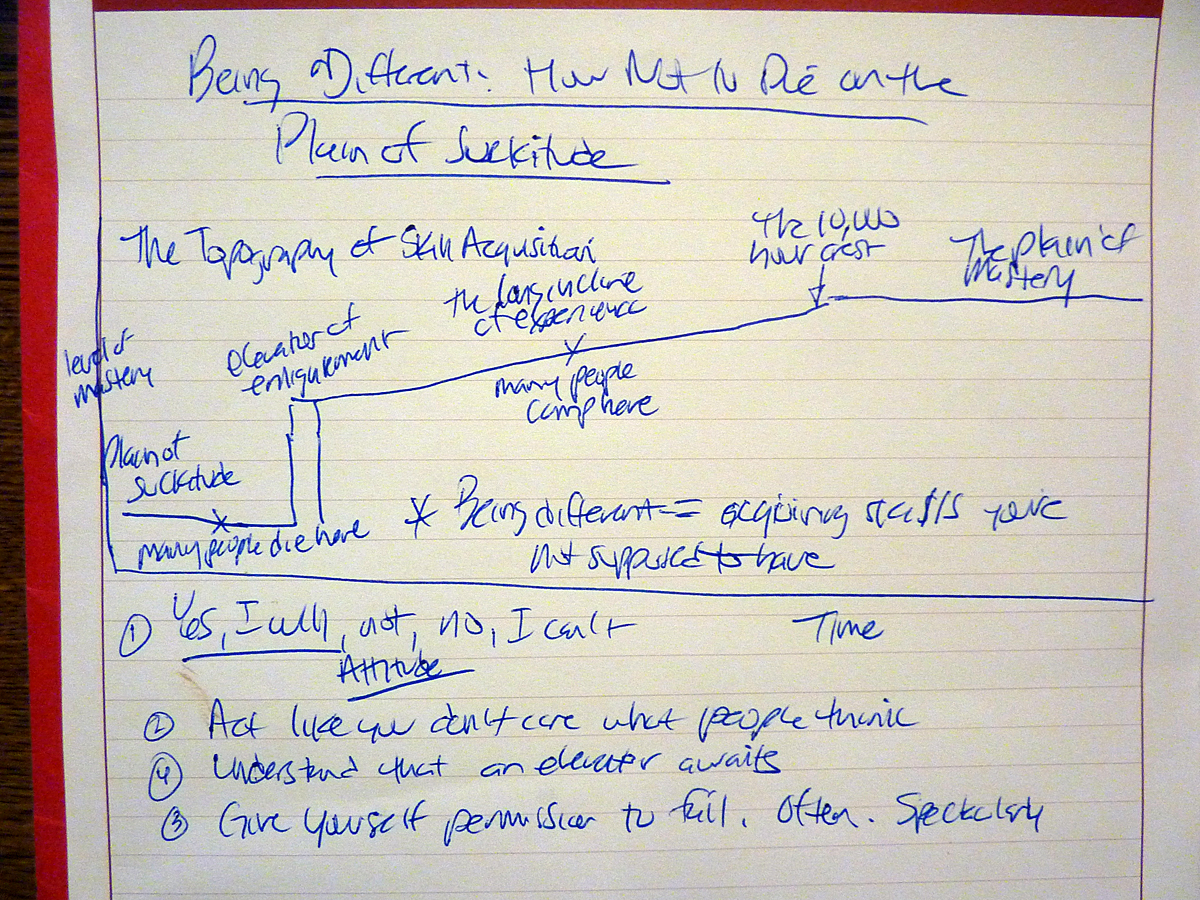 Being Different: How Not to Die on the
Plain of Suckitude
The Topography of Skill Acquisition
The 10,000
hour crest
The plain of
mastery
the long incline
of experience
elevator of
enliqukenment
level of
mastery
many people
camp here
Plain of
suckitude
many people die here
* Being different = acquiring skills you're
not supposed to have
Time
① Yes, I will, not, no, I can't
Attitude
② Act like you don't care what people think
④ Understand that an elevator awaits
③ Give yourself permission to fail. Often. Spectacularly